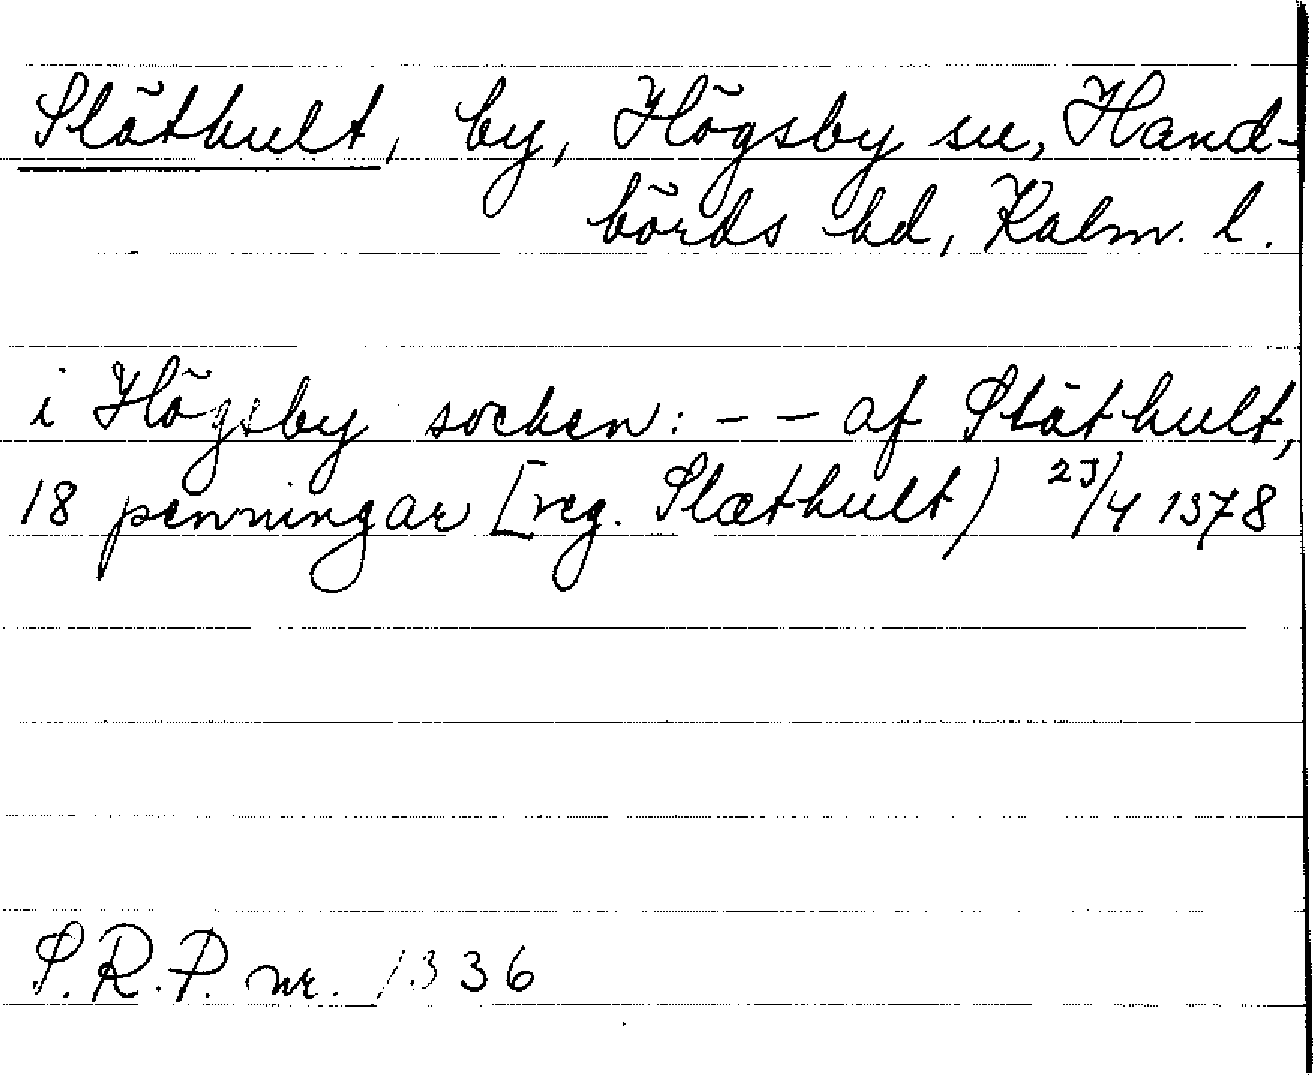 Släthult, by, Högsby sn, Hand-
börds hd, Kalm. l.
i Högsby socken: - - af Släthult,
18 penningar [reg. Slæthult) 25/4 1378
S.R.P. nr. 1336